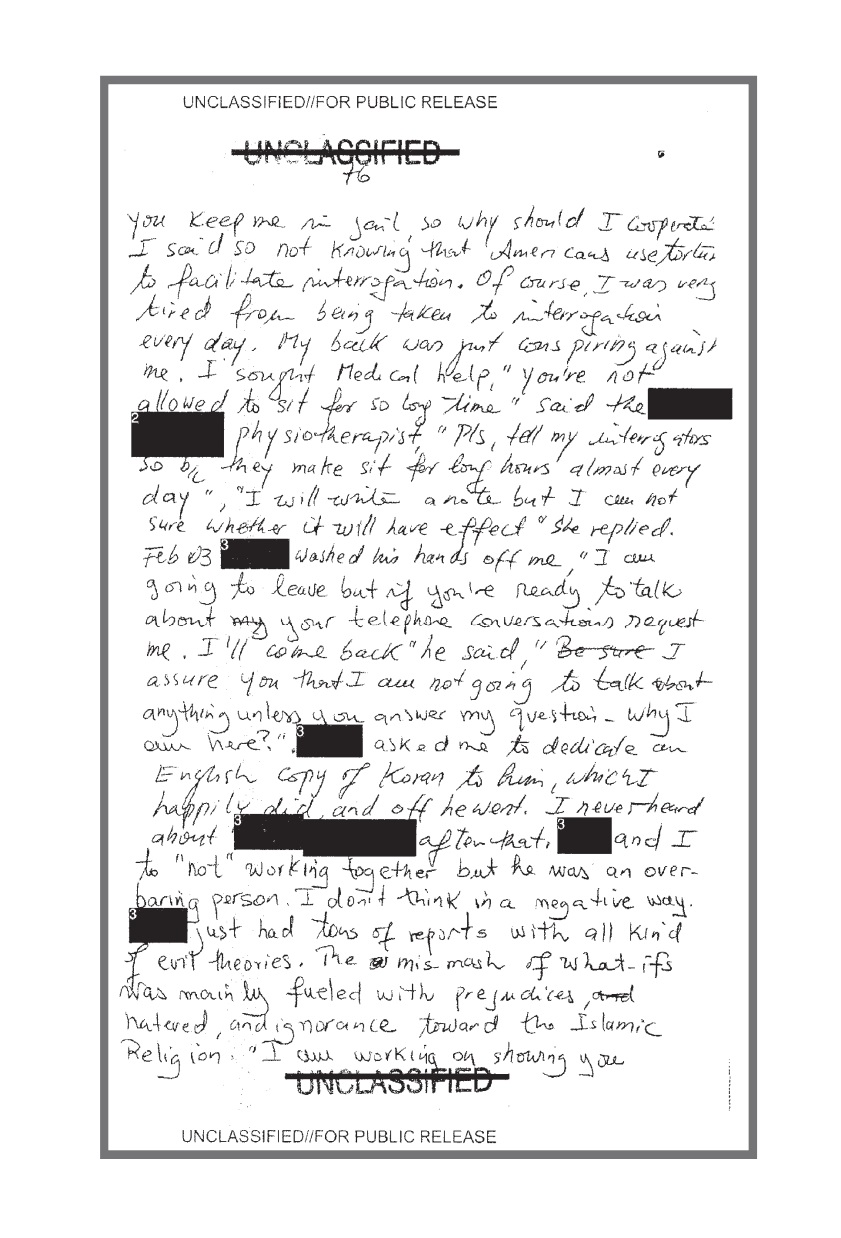 UNCLASSIFIED//FOR PUBLIC RELEASE
UNCLASSIFIED
76
you keep me in jail, so why should I cooperate
I said so not knowing that Americans use tortur
to facilitate interrogation. Of course, I was very
tired from being taken to interrogation
every day. My back was just conspiring against
me. I sought Medical help, "you're not
allowed to sit for so long time" said the
2
physiotherapist, "Pls, tell my interrogators
so b/c they make sit for long hours almost every
day", "I will write a note but I am not
sure whether it will have effect "She replied.
Feb 03 3 washed his hands off me, "I am
going to leave but if you're ready to talk
about my your telephone conversations request
me. I'll come back "he said, "Be sure I
assure you that I am not going to talk about
anything unless you answer my question - why I
am here?". 3 asked me to dedicate an
English copy of Koran to him, which I
happily did, and off he went. I never heard
about 3 after that, 3 and I
to "not" working together but he was an over-
baring person. I don't think in a negative way.
3 just had tons of reports with all kind
of evil theories. The mis mash of what-ifs
was mainly fueled with prejudices, and
hatered, and ignorance toward the Islamic
Religion. "I am working on showing you
UNCLASSIFIED
UNCLASSIFIED//FOR PUBLIC RELEASE